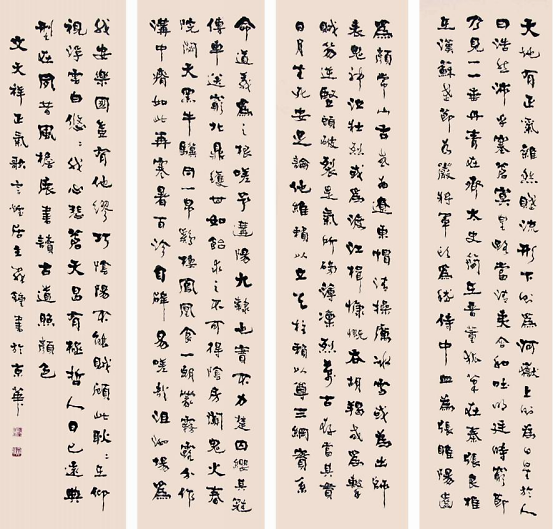 天地有正氣雜然賦流形下則為河嶽上則為日星於人
曰浩然沛乎塞蒼冥皇路當清夷含和吐明廷時窮節
乃見一一垂丹青在齊太史簡在晉董狐筆在秦張良椎
在漢蘇武節為嚴將軍頭為嵇侍中血為張睢陽齒
為顏常山舌或為遼東帽清操厲冰雪或為出師
表鬼神泣壯烈或為渡江楫慷慨吞胡羯或為擊
賊笏逆豎頭破裂是氣所磅礴凜烈萬古存當其貫
日月生死安足論地維賴以立天柱賴以尊三綱實系
命道義為之根嗟予遘陽九隸也實不力楚囚纓其冠
傳車送窮北鼎鑊甘如飴求之不可得陰房闃鬼火春
院閟天黑牛驥同一皁雞棲鳳凰食一朝蒙霧露分作
溝中瘠如此再寒暑百沴自辟易嗟哉沮洳場為
我安樂國豈有他繆巧陰陽不能賊顧此耿〻在仰
視浮雲白悠〻我心悲蒼天曷有極哲人日已遠典
型在夙昔風檐展書讀古道照顏色
文天祥正氣歌居士書於京華